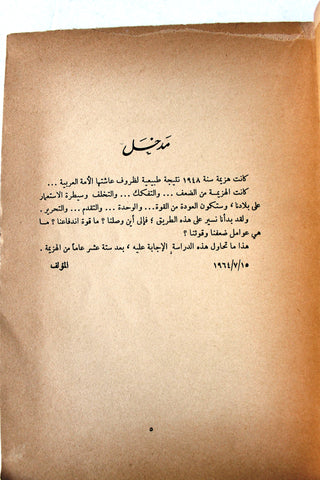 مدخل
كانت هزيمة سنة ١٩٤٨ نتيجة طبيعية لظروف عاشتها الأمة العربية ...
كانت الهزيمة من الضعف ... والتفكك ... والتخلف وسيطرة الاستعمار
على بلادنا ، وستكون العودة من القوة... والوحدة ... والتقدم ... والتحرير .
ولقد بدأنا نسير على هذه الطريق ؛ فإلى أين وصلنا ؟ ما قوة اندفاعنا ؟ ما
هي عوامل ضعفنا وقوتنا ؟
هذا ما تحاول هذه الدراسة الإجابة عليه ، بعد ستة عشر عاماً من الهزيمة .
١٩٦٤/٧/١٥ المؤلف
٥